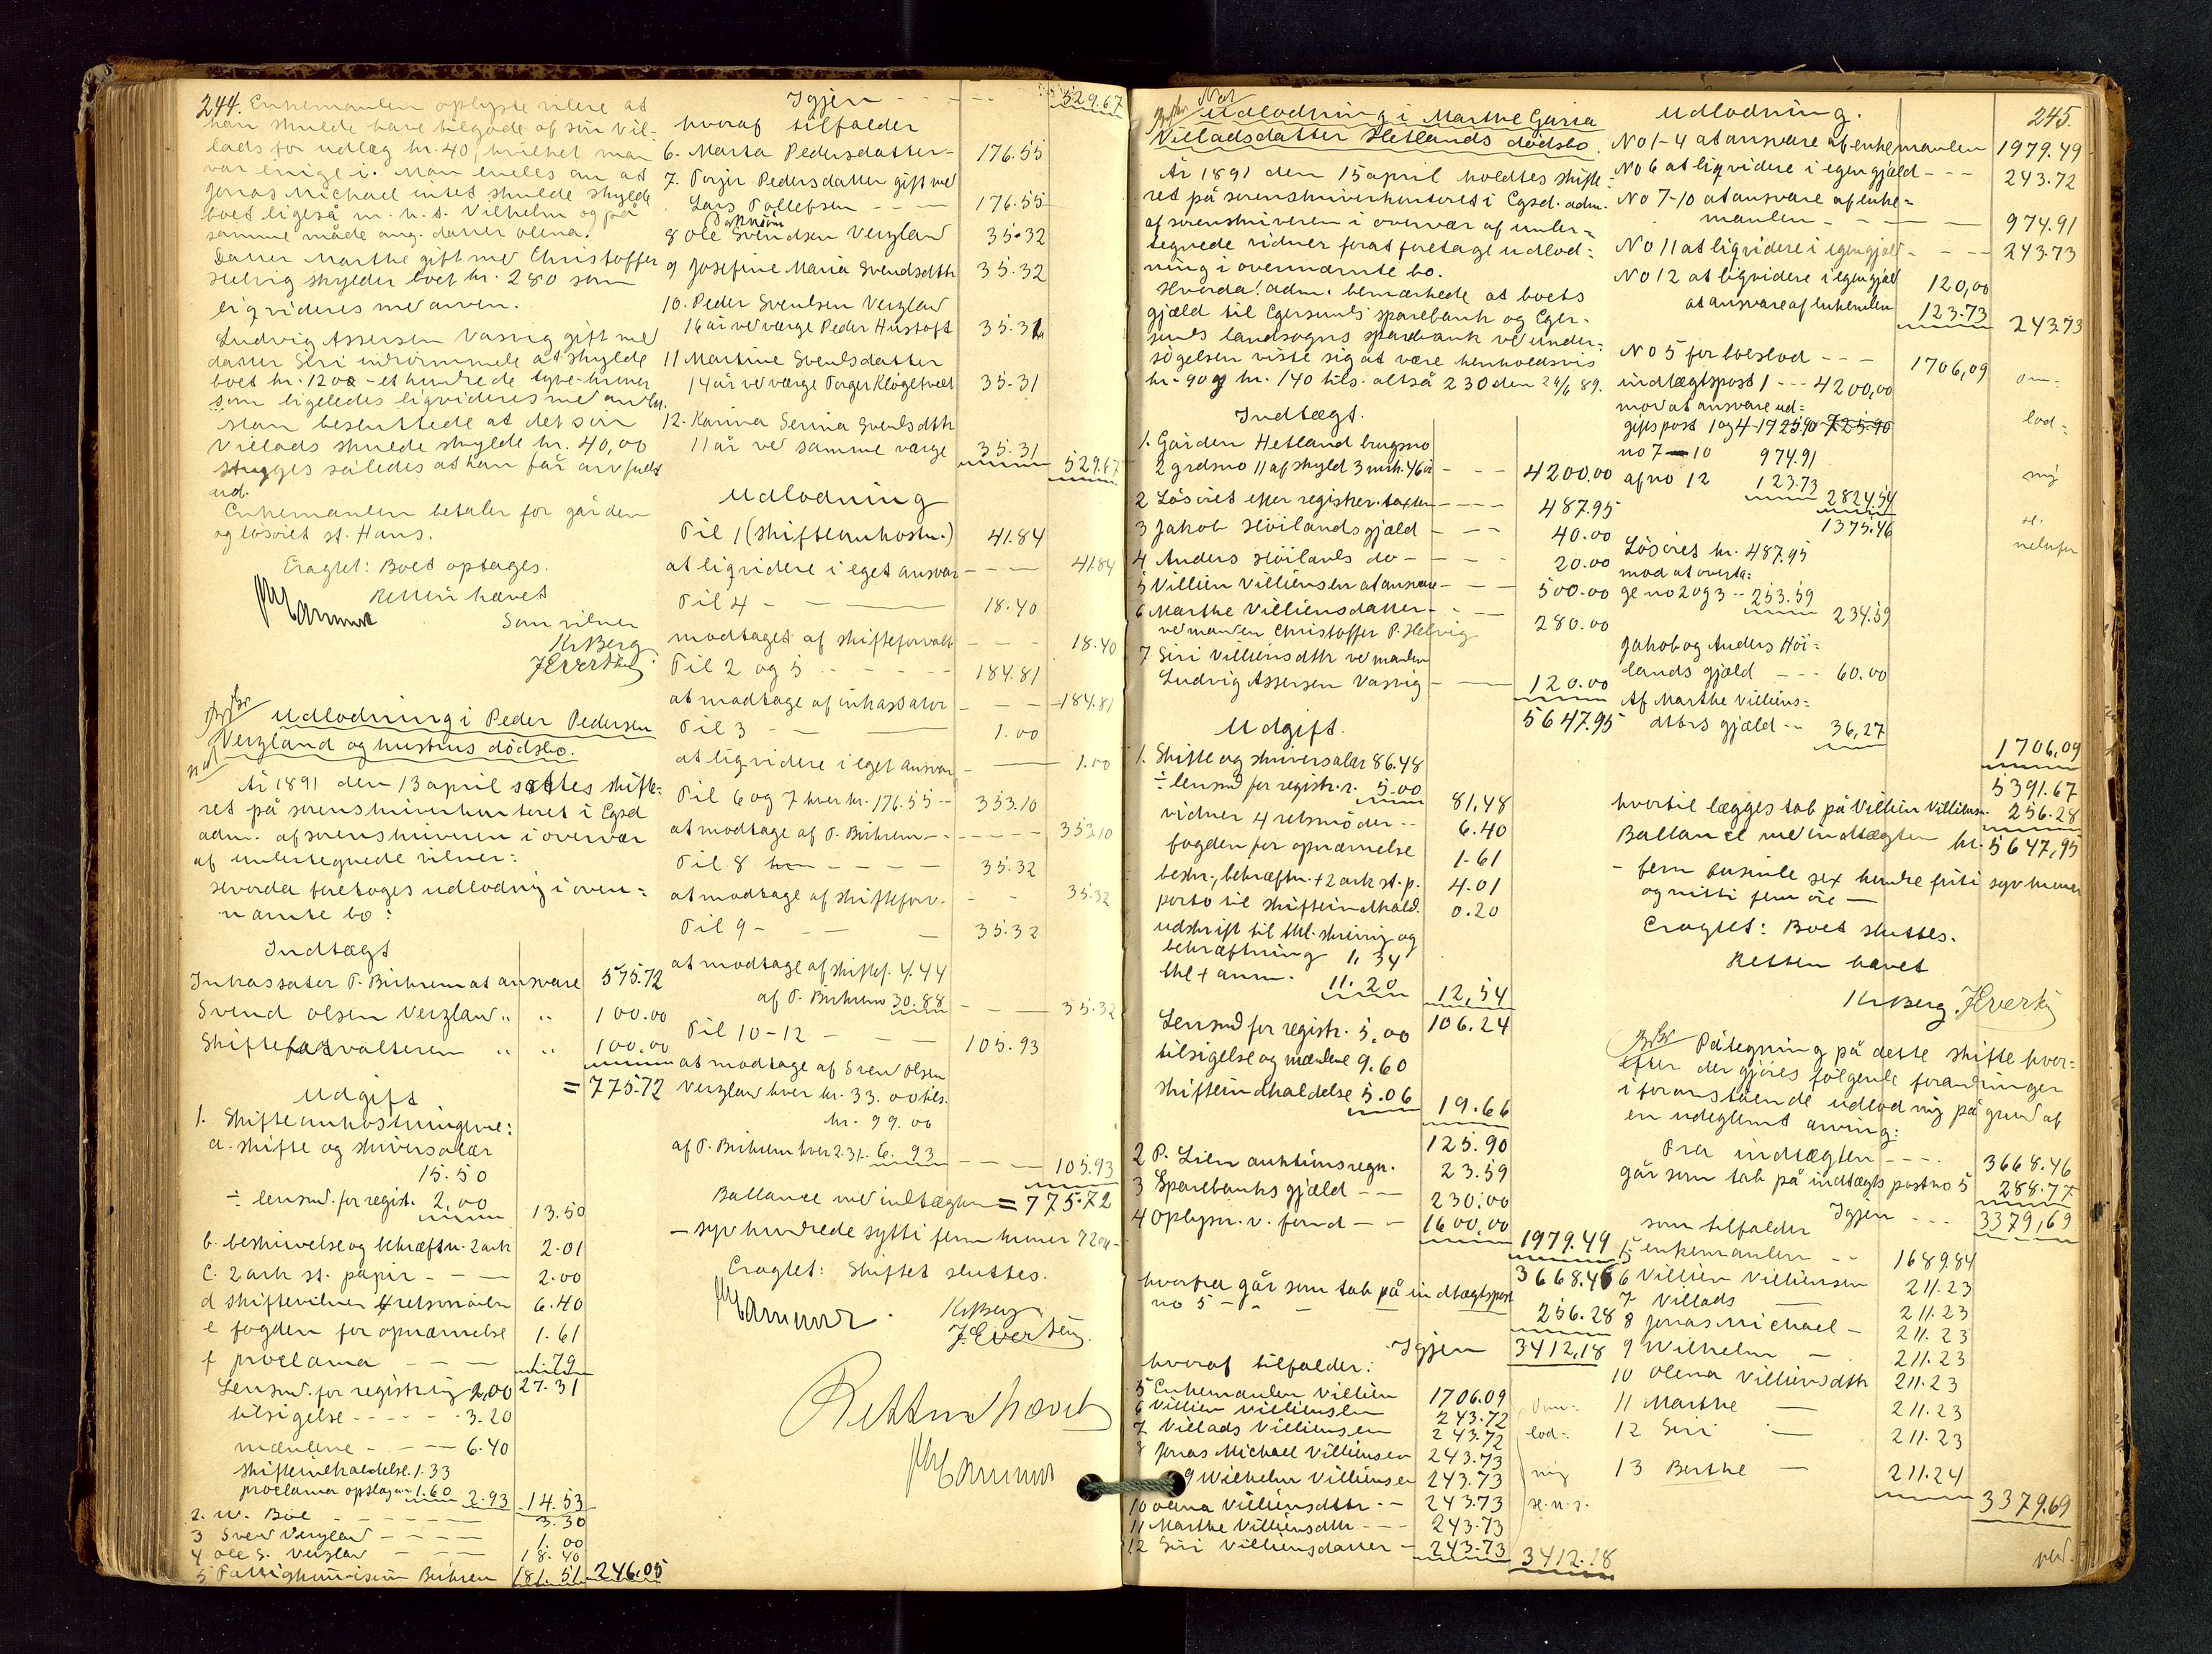 244. Enkemanden oplyste videre at
han skulde have tilgode af sön Vil-
lads for udlæg kr. 40, hvilket man
var enige i. Man enedes om at
Jonas Michael intet skulde skylde
boet ligeså m. h. t. Vilhelm og på
samme måde ang. datter Olena.
Datter Marthe gift med Christoffer
Helvig skylder boet kr. 280 som
liqvideres med arven.
Ludvig Assersen Vasvig gift med
datter Siri indrömmede at skylde
boet kr. 120 - et hundrede tyve kroner
som ligeledes liqvideres med arven.
Man besluttede at det sön
Villads skulde skylde kr. 40,00
stryges således at han får arv fuldt
ud.
Enkemanden betaler for gården
og lösöret st. Hans.
Eragtet: Boet optages.
Retten hævet
Som vidner
Kr Berg
J Evertsen
Udlodning i Peder Pedersen
Verzland og hustrus dödsbo.
År 1891 den 13 april sattes skifte-
ret på sorenskriverkontoret i Egsd
adm. af sorenskriveren i overvær
af undertegnede vidner:
Hvorda foretoges udlodnig i oven-
nævnte bo:
Indtægt
Inkassator T. Birkrem at ansvare 575.72
Svend Olsen Verzland " " 100.00
Skifteforvalteren " " 100.00
= 775.72
Udgift
1. Skifteomkostningerne:
a. skifte og skriversalær
15.50
÷ lensmd. for regist. 2,00 13.50
b. beskrivelse og bekræftn. 2 ark 2.01
c. 2 ark st. papir - - - 2.00
d skiftevidner 4 retsmöder 6.40
e fogden for opnævnelse 1.61
f proclama - - - 1.79
Lensmd. for registrig 2,00 27.31
tilsigelse - - - - - 3.20
mændene - - - - 6.40
skifteindkaldelse 1.33
proclama opslag 1.60 2.93 14.53
2. W. Böe - - - - 3.30
3 Svend Verzland - - - - 1.00
4 Ole S. Verzland - - - 18.40
5 Fattigkommission Birkrem 181.51 246.05
Igjen - - - - 529.67
hvoraf tilfalder
6. Marta Pedersdatter - 176.55
7. Torjer Pedersdatter gift med
Lars Tollefsen - - - 176.55
8 Ole Svendsen Verzland 35.32
9 Josefine Maria Svendsdttr 35.32
10. Peder Svendsen Verzland
16 år ved værge Peder Hustoft 35.31
11 Martine Svendsdatter
14 år ved værge Torger Klögetvedt 35.31
12. Karina Serina Svendsdttr
11 år ved samme værge 35.31
529.67
Udlodning
Til 1 (skifteomkostn.) 41.84
at liqvidere i eget ansvar - - - 41.84
Til 4 - - - 18.40
modtaget af skifteforvalt. - - - 18.40
Til 2 og 5 - - - - 184.81
at modtage af inkassator - - - 184.81
Til 3 - - 1.00
at liqvidere i eget ansvar - - 1.00
Til 6 og 7 hver kr. 176.55 - - 353.10
at modtage af T. Birkrem - - - - - 353.10
Til 8 - - - - 35.32
at modtage af skifteforv. - - 35.32
Til 9 - - - - 35.32
at modtage af skiftef. 4.44
af T. Birkrem 30.88 - - 35.32
Til 10-12 - - - 105.93
at modtage af Svend Olsen
Verzland hver kr. 33.00 tils.
kr. 99.00
af T. Birkrem hver 2.31 - 6.93 - - - 105.93
Ballance med indtægten = 775.72
- syv hundrede sytti fem kroner 72 øre -
Eragtet: Skiftet sluttes.
Kr Berg
J. Evertsen.
Retten hævet
245.
Udlodning i Marthe Garia
Villadsdatter Hetlands dödsbo.
År 1891 den 15 april holdtes skifte-
ret på sorenskriverkontoret i Egsd. adm.
af sorenskriveren i overvær af under-
tegnede vidner forat foretage udlod-
ning i ovennævnte bo.
Hvorda: adm. bemærkede at boets
gjæld til Egersunds sparebank og Eger-
sunds landsogns sparebank ved under-
sögelsen viste sig at være henholdsvis
kr. 90 og kr. 140 tils. altså 230 den 24/6 89.
Indtægt.
1. Gården Hetland brugsno
2 grdsno 11 af skyld 3 mrk. 46 ö - - - 4200.00
2 Lösöret efter registrer. taxten - - - - 487.95
3 Jakob Höilands gjæld - - - 40.00
4 Anders Höilands do - - - 20.00
5 Villien Villiensen at ansvare - - - 500.00
6 Marthe Villiensdatter - - -
ved manden Christoffer P. Helvig 280.00
7 Siri Villiensdttr ved manden
Ludvig Assersen Vasvig - - 120.00
5647.95
Udgift.
1. Skifte og skriversalær 86.48
÷ lensmd for registr. 5.00 81,48
vidner 4 retsmöder - - 6.40
fogden for opnævnelse 1.61
beskr., bekræftn. + 2 ark st. p. 4.01
porto til skifteindkald. 0.20
udskrift til thl. skriving og
bekræftning 1,34
thl + anm. 11.20 12,54
Lensmd for registr. 5,00 106.24
tilsigelse og mændene 9.60
skifteindkaldelse 5.06 19.66
125.90
2 P. Lien auktionsregn. 23.59
3 Sparebanks gjæld - - - 230.00
4 Oplysn. v. förd - - 1600,00
1979.49
3668.46
hvorfra går som tab på indtægtspost
no 5 - - - 256.28
Igjen 3412,18
hvoraf tilfalder:
5 Enkemanden Villien 1706.09
6 Villien Villiensen 243.72
7 Villads Villiensen 243.72
8 Jonas Michael Villiensen 243.73
9 Wilhelm Villiensen 243.73
10 Olena Villiensdttr - - 243.73
11 Marthe Villiensdttr - - - 243.73
12 Siri Villiensdatter - 243.73 3412.18
Om-
lod-
nig
se. n. s.
Udlodning.
No 1-4 at ansvare af enkemanden 1979.49
No 6 at liqvidere i egen gjæld - - - 243.72
No 7-10 at ansvare af enke-
manden - - - 974.91
No 11 at liqvidere i egen gjæld - - - 243.73
No 12 at liqvidere i egen gjæld 120,00
at ansvare af enkemanden 123.73 243.73
No 5 for boeslod - - - 1706,09
indtægtspost 1 - - - 4200,00
mod at ansvare ud-
giftspost 1 og 4 1725.90 725.90
no 7-10 974.91
af no 12 123.73 2824.54
1375.46
Lösöret kr. 487.95
mod at overta-
ge no 2 og 3 - - 253.59 234.59
Jakob og Anders Höi-
lands gjæld - - - 60.00
Af Marthe Villiens-
dttrs gjæld - - 36,27
1706,09
5391.67
hvortil lægges tab på Villien Villiensen 256.28
Ballance med indtægten kr. 5647,95
- fem tusinde sex hundre förti syv kroner
og nitti fem öre -
Eragtet: Boet sluttes.
Retten hævet
Kr Berg. J Evertsen
Om-
lod-
nig
se.
nedenfor
Påtegning på dette skifte hvor-
efter der gjöres fölgende forandringer
i foranstående udlodnig på grund af
en udeglemt arving:
Fra indtægten - - - - 3668.46
går som tab på indtægts post no 5 288.77
Igjen - - - 3379,69
som tilfalder
5 enkemanden - - 1689.84
6 Villien Villiensen 211.23
7 Villads - 211.23
8 Jonas Michael - 211.23
9 Wilhelm - 211.23
10 Olena Villiensdttr 211.23
11 Marthe - 211.23
12 Siri - 211.23
13 Berthe - 211.24
3379.69